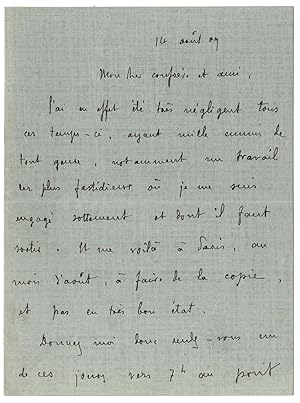 14 août 09
Mon cher confrère et ami,
J'ai en effet été très négligent tous
ces temps-ci, ayant mille ennuis de
tout genre, notamment un travail
des plus fastidieux où je me suis
engagé sottement et dont il faut
sortir. Et me voilà à Paris, au
mois d'août, à faire de la copie,
et pas en très bon état.
Donnez moi donc rendez-vous un
de ces jours vers 7h au point